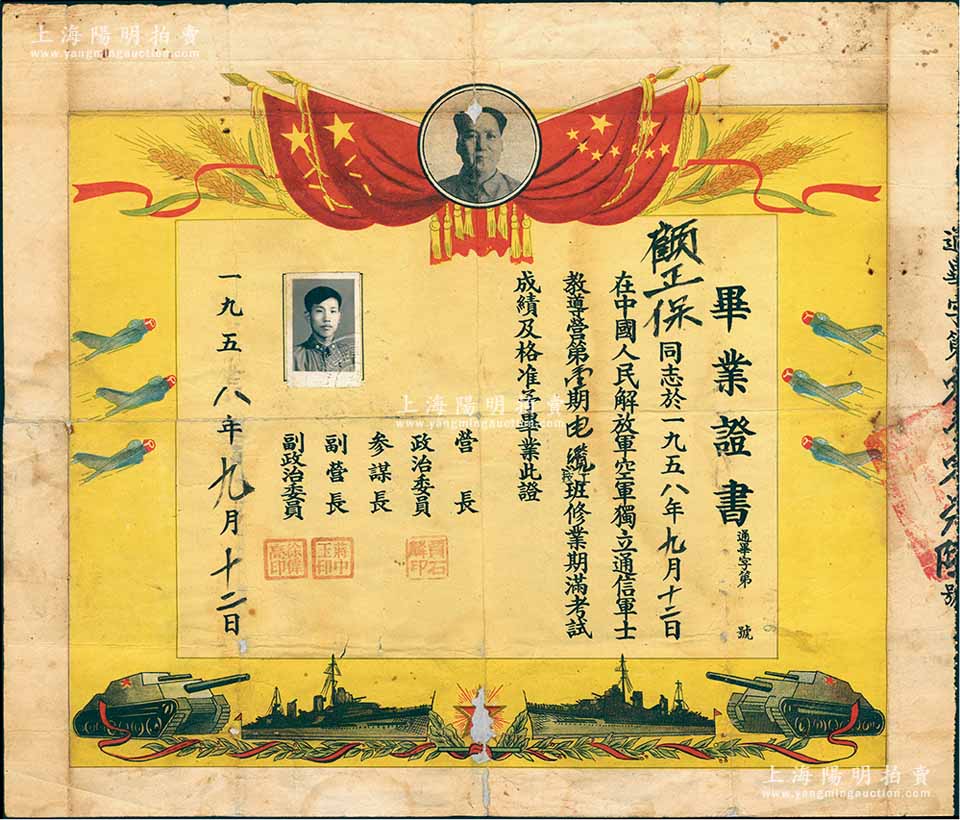 上海陽明拍賣
www.yangmingauction.com
畢業證書
通畢字第 號
顧正保同志於一九五八年九月十二日
在中國人民解放軍空軍獨立通信軍士
教導營第壹期电纜班修業期滿考試
成績及格准予畢業此證
營長
政治委員
參謀長
副營長
副政治委員
賈石麟印
蔣中玉印
徐偉高印
一九五八年九月十二日
通畢字第
號
上海陽明拍賣
www.yangmingauction.com
上海陽明拍賣
www.yangmingauction.com